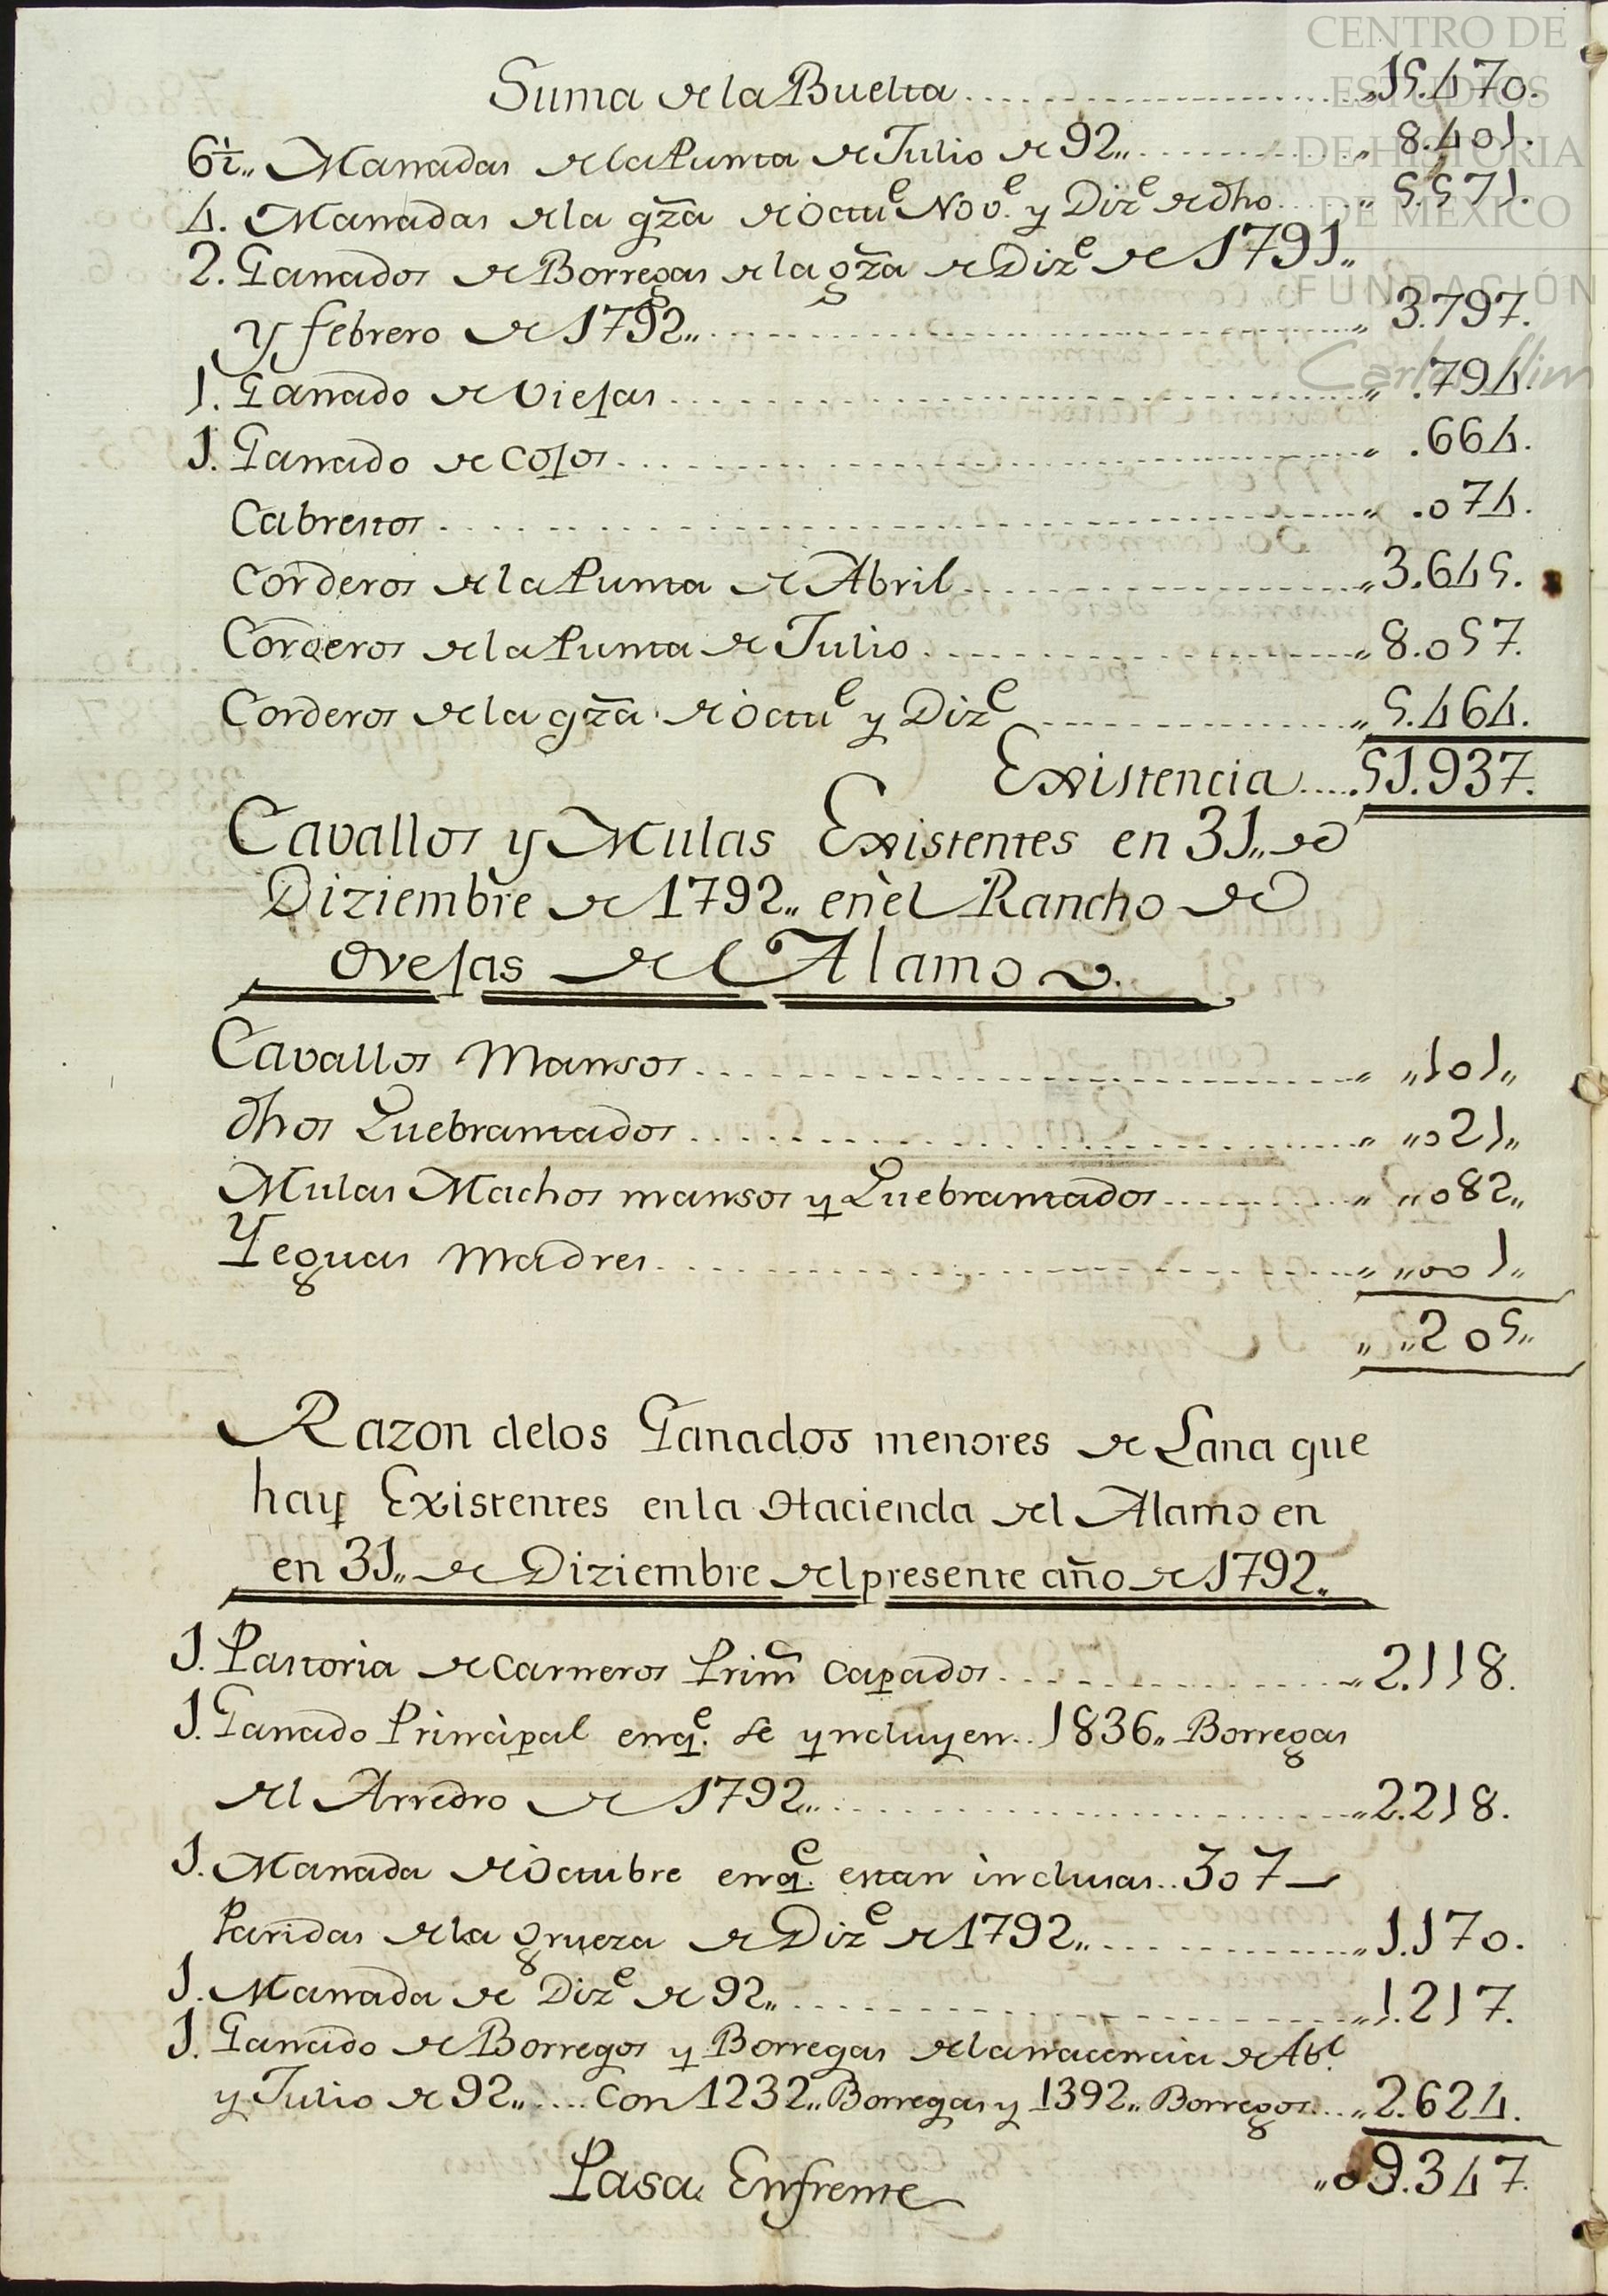 CENTRO DE
ESTUDIOS
DE HISTORIA
DE MÉXICO
FUNDACIÓN
Carlos Slim
Suma de la Buelta „15.470.
6½„ Manadas de la Punta de Julio de 92„ „ 8.401.
4. Manadas de la gza de Octue Nove. y Dize de dho „ 5.571.
2. Ganados de Borregas de la gza de Dize de 1791„
y febrero de 1792„ „ 3.797.
1. Ganado de Viejas „ .794.
1. Ganado de Cojos „ .664.
Cabrestos „ .074.
Corderos de la Punta de Abril „3.645.
Corderos de la Punta de Julio „8.057.
Corderos de la gza de Octue y Dize „5.464.
Existencia 51.937.
Cavallos y Mulas Existentes en 31„ de
Diziembre de 1792„ en èl Rancho de
Ovejas del Alamo
Cavallos Mansos „ „101„
dhos Quebrantados „ „021„
Mulas Machos mansos y Quebrantados „ „082„
Yeguas Madres „ „001„
„ „205„
Razon delos Ganados menores de Lana que
hay Existentes en la Hacienda del Alamo en
en 31„ de Diziembre del presente año de 1792„
1. Pastoria de Carneros Prim Capados „2.118.
1. Ganado Principal enqe. se yncluyen 1836„ Borregas
del Arredro de 1792„ „2.218.
1. Manada de Octubre enqe. estan inclusas 307
Paridas de la grueza de Dize de 1792„ „1.170.
1. Manada de Dize de 92„ „1.217.
1. Ganado de Borregos y Borregas de la nacencia de Abl
y Julio de 92„ Con 1232„ Borregas y 1392„ Borregos „2.624.
Pasa Enfrente „09.347.